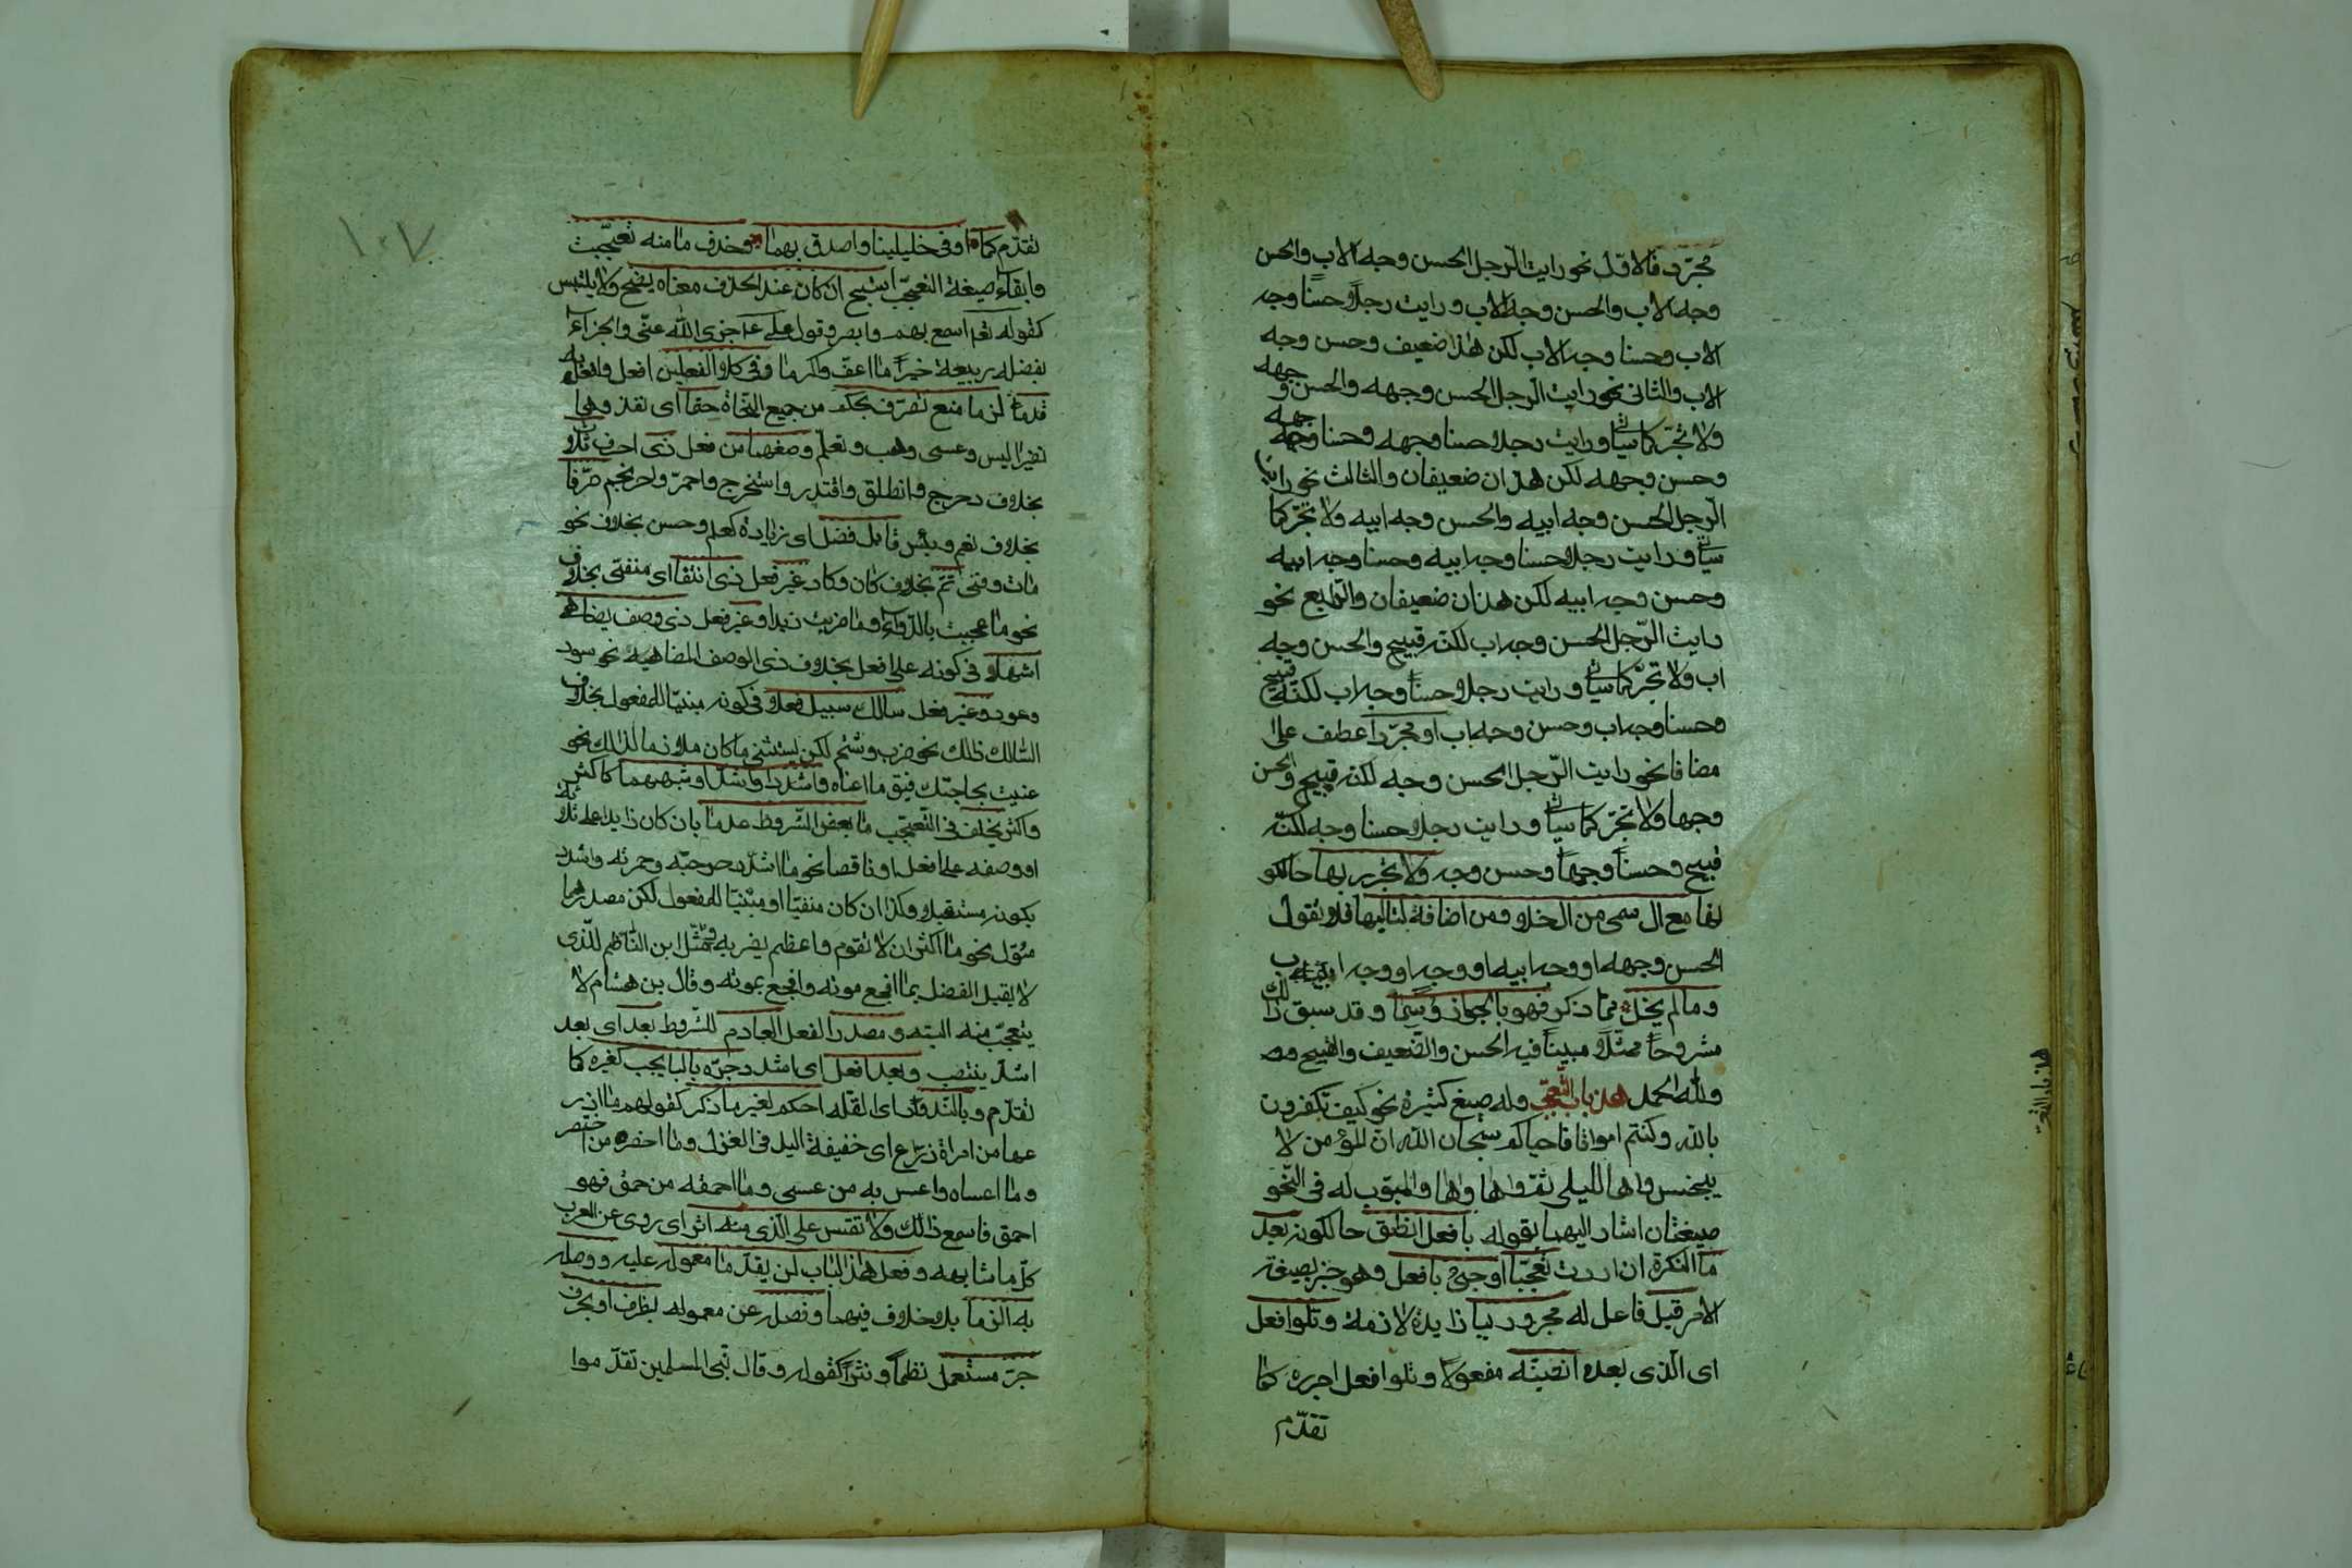 مجرّد فالاوّل نحو رايت الرّجل الحسن وجه الاب والحسن
وجه الاب والحسن وجه الاب ورايت رجلًا حسنًا وجه
الاب وحسنا وجه الاب لكن هذا ضعيف وحسن وجه
الاب والثانى نحو رايت الرّجل الحسن وجهه والحسن وجهه
ولا تجرّ كما سياتى ورايت رجلا حسنا وجهه وحسنا وجهه
وحسن وجهه لكن هذان ضعيفان والثالث نحو رايت
الرّجل الحسن وجه ابيه والحسن وجه ابيه ولا تجرّ كما
سياتى ورايت رجلا حسنا وجه ابيه وحسنا وجه ابيه
وحسن وجه ابيه لكن هذان ضعيفان والرّابع نحو
رايت الرّجل الحسن وجه اب لكنّه قبيح والحسن وجه
اب ولا تجرّ كما سياتى ورايت رجلا حسنًا وجه اب لكنّه قبيح
وحسنا وجه اب وحسن وجه اب او مجرّدا عطف على
مضافا نحو رايت الرّجل الحسن وجه لكنّه قبيح والحسن
وجها ولا تجرّ كما سياتى ورايت رجلا حسنا وجه لكنّه
قبيح وحسنًا وجهًا وحسن وجه ولا تجرر بها حالكو
نها مع ال سمى من ال خلا ومن اضافة لتاليها فلا تقول
الحسن وجهه او وجه ابيه او وجه او وجه اب
وما لم يخل ممّا ذكر فهو بالجواز وُسِما وقد سبق ذلك
مشروحًا ممثّلًا مبينًا فيه الحسن والضعيف والقبيح
ولله الحمد هذا باب التّعجّب وله صيغ كثيرة نحو كيف تكفرون
بالله وكنتم امواتا فاحياكم سبحان الله ان المؤمن لا
ينجس واها لليلى ثمّ واها واها والمبوّب له فى النّحو
صيغتان اشار اليهما بقوله بافعل انطق حالكونه بعد
ما النكرة ان اردت تعجّبا او جئ بافعل وهو خبر بصيغة
الامر قبل فاعل له مجرور ببا زايدة لازمة وتلو افعل
اى الّذى بعده انصبنّه مفعولا وتلو افعل اجرره كما
تقدّم
هذا باب التعجب
١٠٧
تقدّم كما اوفى خليلينا واصدق بهما وحذف ما منه تعجّبت
وابقاء صيغة التعجّب استبح ان كان عند الحذف معناه يضح ولا يلتبس
كقوله تعم اسمع بهم وابصر وقول على ع جزى الله عنّى والجزاء
بفضله ربيعة خيرًا ما اعفّ واكرما وفى كلا الفعلين افعل وافعل به
قدما لزما منع تصرّف بحكم من جميع النّحاة حتما اى نفذ وهما
نظيرا ليس وعسى وهب وتعلّم وصغهما من فعل ذى احرف ثلاث
بخلاف دحرج وانطلق واقتدر واستخرج واحمرّ واحرنجم صرّفا
بخلاف نعم وبئس قابل فضل اى زيادة كعلم وحسن بخلاف نحو
مات وفنى تمّ بخلاف كان وكاد غير فعل ذى انتفا اى منفى بخلاف
نحو ما عجبت بالدّواء وما ضربت زيدا وغير فعل ذى وصف يضاهى
اشهلا فى كونه على افعل بخلاف ذى الوصف المضاهيه نحو سود
وعور وغير فعل سالك سبيل فعلا فى كونه مبنيّا للمفعول بخلاف
السّالك ذلك نحو ضرب وشتم لكن يستثنى ما كان ملازما لذلك نحو
عنيت بحاجتك فيق ما اعناه واشدد او اشدّ او شبههما كاكثر
واكثر يخلف فى التّعجّب ما بعض الشّروط عدما بان كان زايدا على ثلاثة
او وصفه على افعل او ناقصا نحو ما اشدّ دحرجته وحمرته واشدد
بكونه مستقبلا وكذا ان كان منفيّا او مبنيّا للمفعول لكن مصدرهما
مؤوّل نحو ما اكثر ان لا تقوم واعظم بضربه ومثّل ابن النّاظم للّذى
لا يقبل الفضل بما افجع موته وافجع بموته وقال بن هشام لا
يتعجّب منه البته ومصدر الفعل العادم للشّروط بعد اى بعد
اشدّ ينتصب وبعد افعل اى اشدد جرّه بالبا يجب كغيره كما
تقدّم وبالنّدور اى القلّه احكم لغير ما ذكر كقولهم ما اذر
عها من امراة ذراع اى خفيفة اليد فى الغزل وما اخصره من اختصر
وما اعساه واعس به من عسى وما احمقه من حمق فهو
احمق فاسمع ذلك ولا تقس على الّذى منه اثر اى روى عن العرب
كلّ ما شابهه وفعل هذا الباب لن يقدّما معموله عليه ووصله
به الزما بلا خلاف فيهما وفصله عن معموله بظرف او بحرف
جرّ مستعمل نظمًا ونثرًا كقوله وقال نبى المسلمين تقدّموا